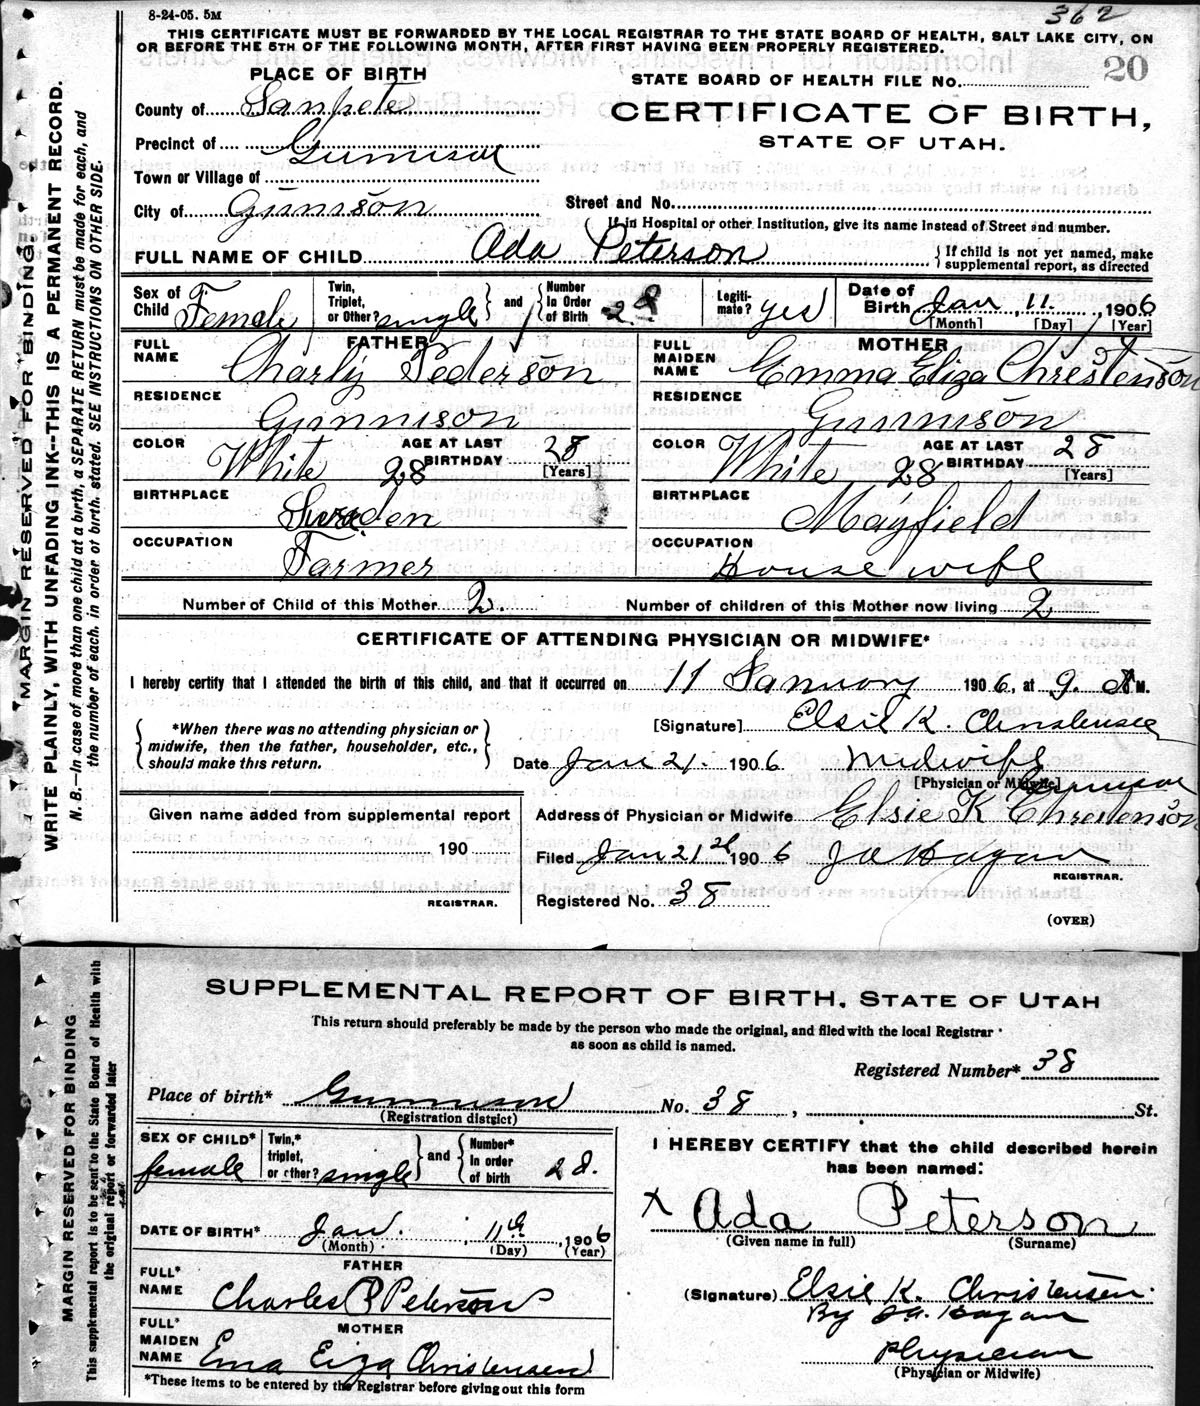 8-24-05. 5M
362
THIS CERTIFICATE MUST BE FORWARDED BY THE LOCAL REGISTRAR TO THE STATE BOARD OF HEALTH, SALT LAKE CITY, ON
OR BEFORE THE 5TH OF THE FOLLOWING MONTH, AFTER FIRST HAVING BEEN PROPERLY REGISTERED.
20
PLACE OF BIRTH
STATE BOARD OF HEALTH FILE No.
County of Sanpete
CERTIFICATE OF BIRTH,
STATE OF UTAH.
Precinct of Gunnison
Town or Village of
City of Gunnison
Street and No.
If in Hospital or other Institution, give its name instead of Street and number.
FULL NAME OF CHILD Ada Peterson
{ If child is not yet named, make
supplemental report, as directed
Sex of Child Female
Twin, Triplet, or Other? single } and { Number In Order of Birth 2d
Legiti- mate? yes
Date of Birth Jan, 11, 1906
[Month] [Day] [Year]
FATHER
FULL NAME Charly Pederson
MOTHER
FULL MAIDEN NAME Emma Eliza Chrestenson
RESIDENCE Gunnison
RESIDENCE Gunnison
COLOR White 28 AGE AT LAST BIRTHDAY 28 [Years]
COLOR White 28 AGE AT LAST BIRTHDAY 28 [Years]
BIRTHPLACE Sweden
BIRTHPLACE Mayfield
OCCUPATION Farmer
OCCUPATION House wife
Number of Child of this Mother 2.
Number of children of this Mother now living 2
CERTIFICATE OF ATTENDING PHYSICIAN OR MIDWIFE*
I hereby certify that I attended the birth of this child, and that it occurred on 11 January 1906, at 9. M.
{ *When there was no attending physician or
midwife, then the father, householder, etc.,
should make this return. }
[Signature] Elsie K. Christensen
Date Jan 21. 1906 Midwife
[Physician or Midwife]
Gunnison
Given name added from supplemental report
190
REGISTRAR.
Address of Physician or Midwife Elsie K Chrestenson
Filed Jan 21st 1906 J A Hagan
REGISTRAR.
Registered No. 38
(OVER)
MARGIN RESERVED FOR BINDING.
WRITE PLAINLY, WITH UNFADING INK--THIS IS A PERMANENT RECORD.
N. B.—In case of more than one child at a birth, a SEPARATE RETURN must be made for each, and
the number of each, in order of birth, stated. SEE INSTRUCTIONS ON OTHER SIDE.
SUPPLEMENTAL REPORT OF BIRTH, STATE OF UTAH
This return should preferably be made by the person who made the original, and filed with the local Registrar
as soon as child is named.
Registered Number* 38
Place of birth* Gunnison No. 38, St.
(Registration district)
SEX OF CHILD* female
Twin,* triplet, or other? single } and { Number* In order of birth 2d.
I HEREBY CERTIFY that the child described herein
has been named:
X Ada Peterson
(Given name in full) (Surname)
DATE OF BIRTH* Jan. 11th, 1906
(Month) (Day) (Year)
FATHER
FULL* NAME Charles P Peterson
(Signature) Elsie K. Christensen.
By J A. Hagan
MOTHER
FULL* MAIDEN NAME Ema Eiza Christensen
physician
(Physician or Midwife)
*These items to be entered by the Registrar before giving out this form
MARGIN RESERVED FOR BINDING
This supplemental report is to be sent to the State Board of Health with
the original report or forwarded later